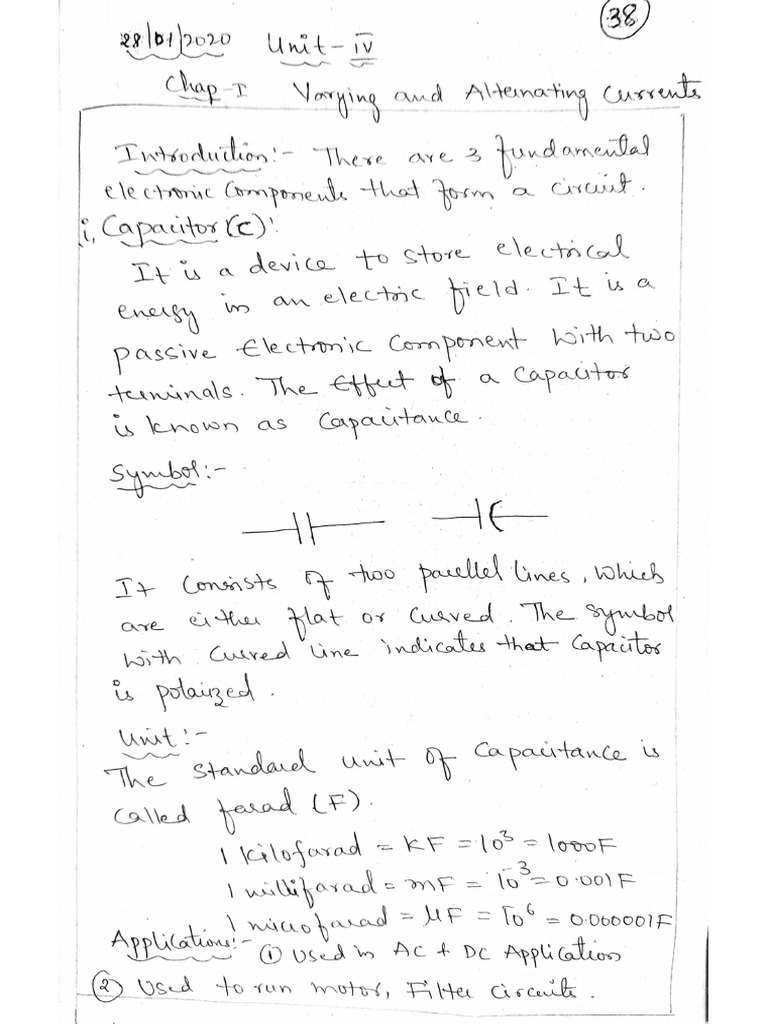 38
28/01/2020 Unit - IV
Chap-I Varying and Alternating Currents
Introduction:- There are 3 fundamental
electronic components that form a circuit.
i, Capacitor (C):
It is a device to store electrical
energy in an electric field. It is a
passive Electronic Component with two
terminals. The Effect of a capacitor
is known as Capacitance.
Symbol:-
It consists of two parellel lines, which
are either flat or curved. The symbol
with curved line indicates that capacitor
is polaized.
Unit:-
The standard unit of Capacitance is
called farad (F).
1 kilofarad = KF = 10³ = 1000F
1 millifarad = mF = 10⁻³ = 0.001F
1 microfarad = μF = 10⁻⁶ = 0.000001F
Applications:- ① Used in AC + DC Application
② Used to run motor, Filter circuits.